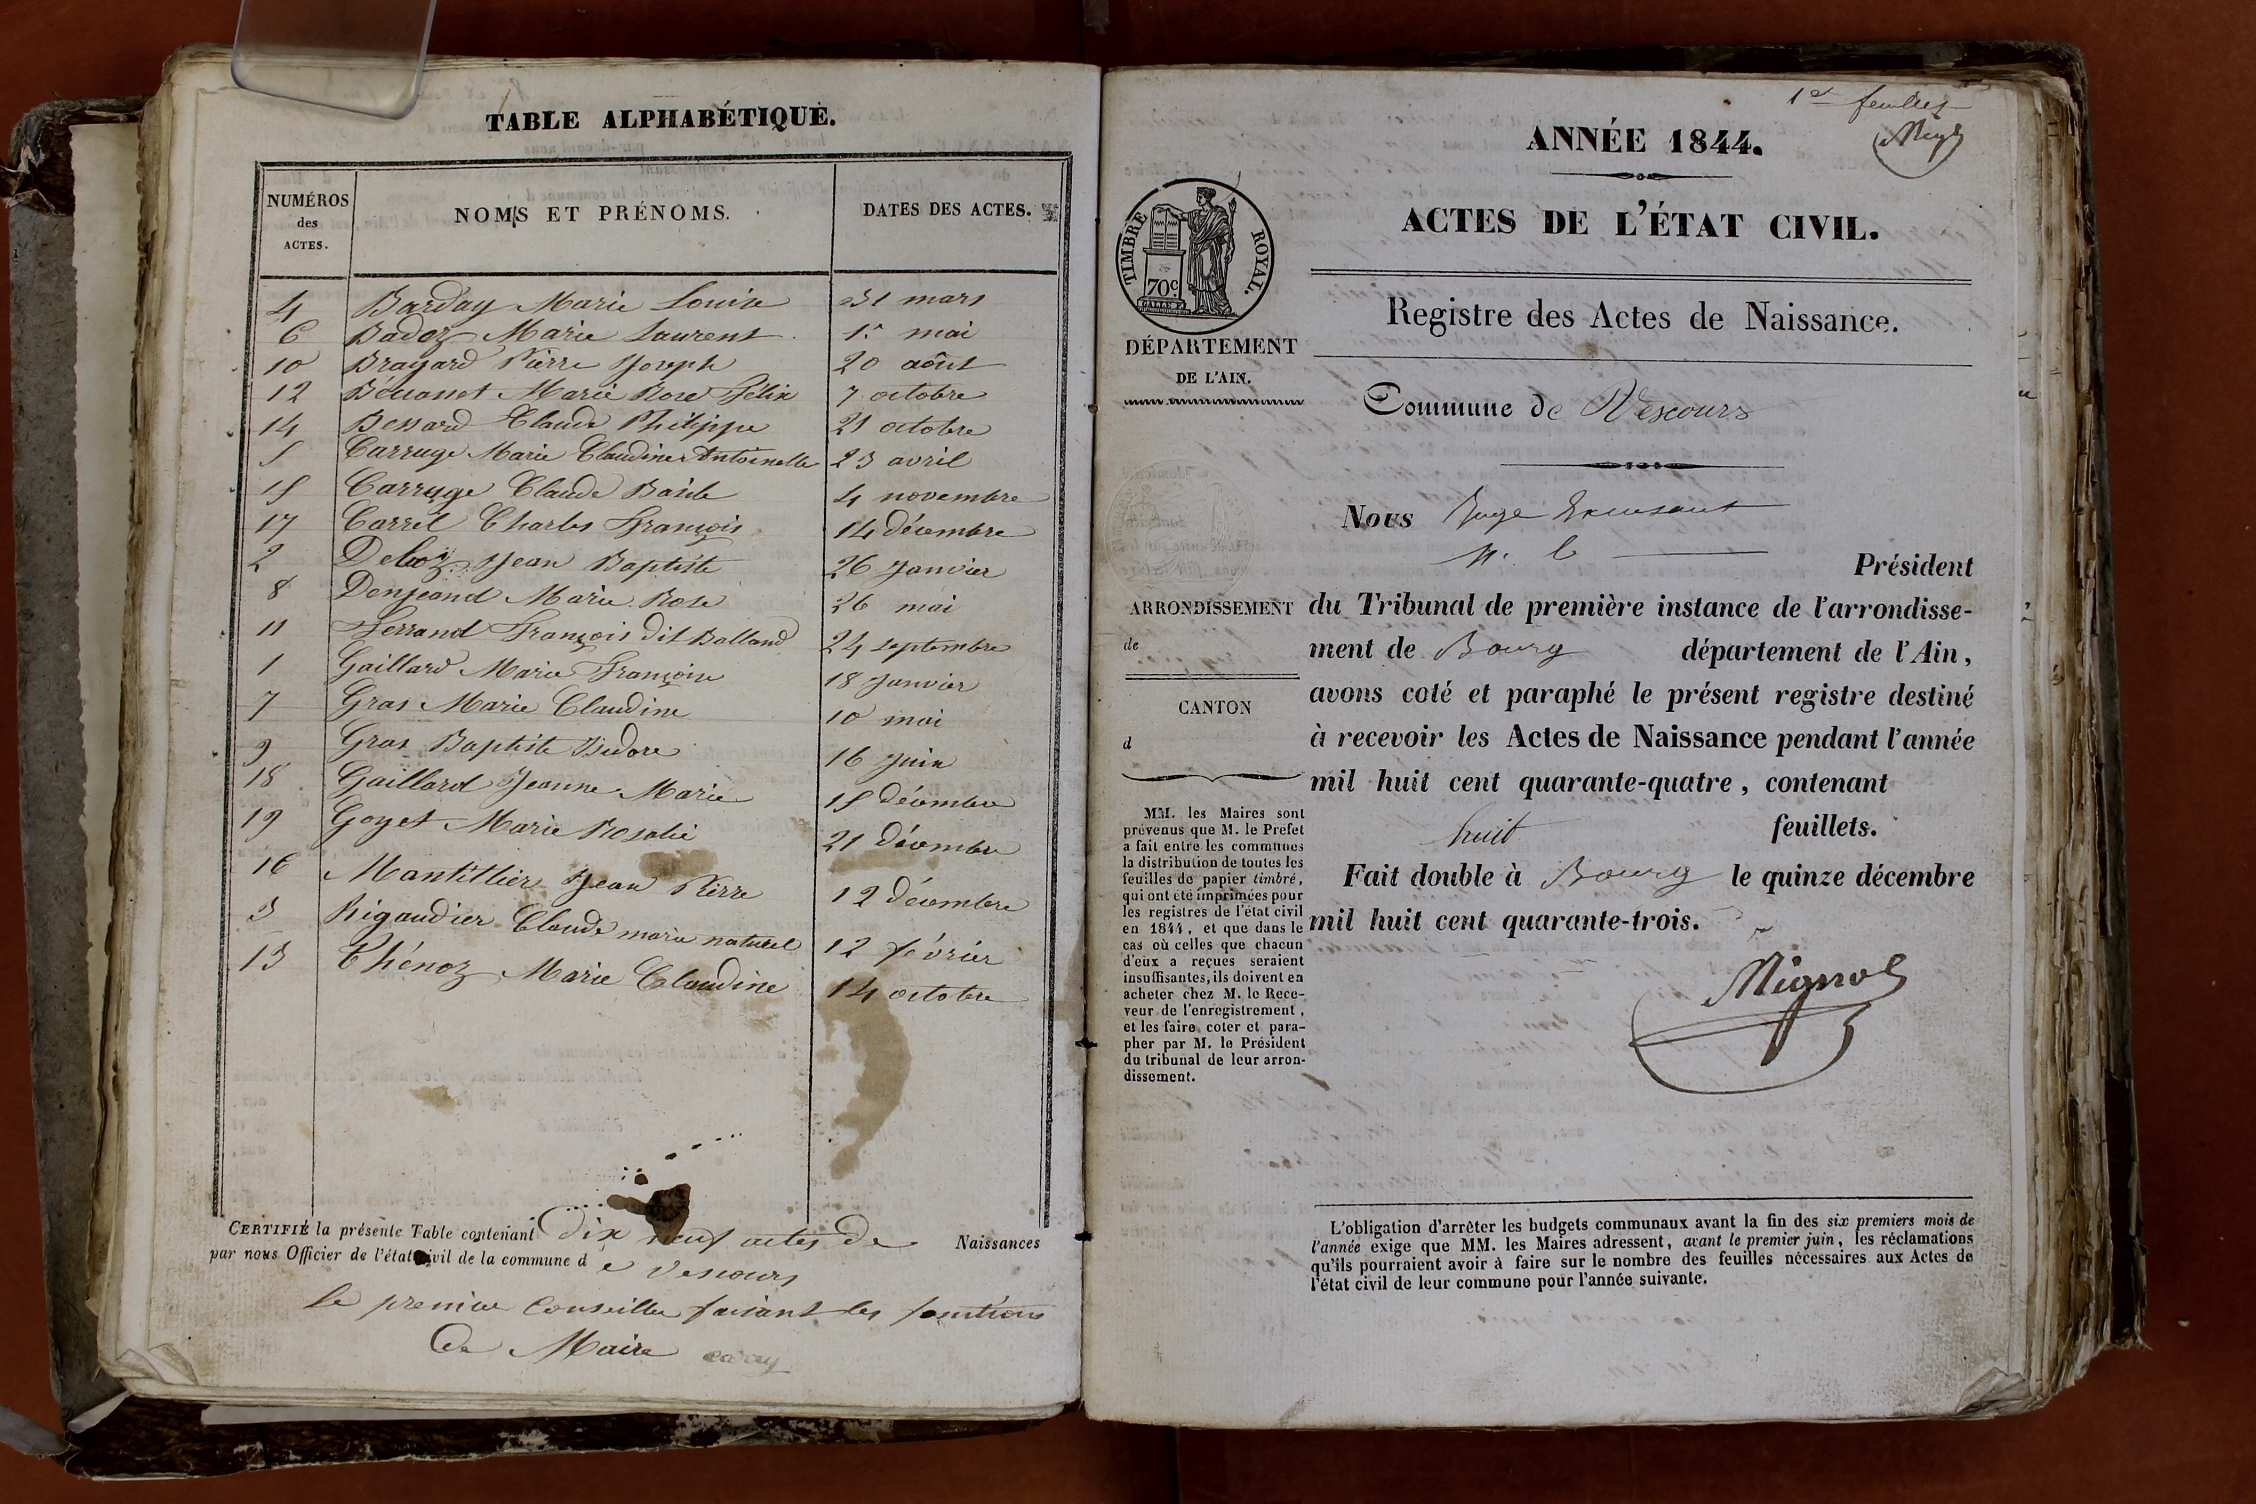 TABLE ALPHABÉTIQUE.
NUMÉROS des ACTES. NOMS ET PRÉNOMS. DATES DES ACTES.
4 Barday Marie Louise 31 mars
6 Badoz Marie Laurent 1er mai
10 Brayard Pierre Joseph 20 août
12 Marie Rose Félix 7 octobre
14 Bessard Claude Philippe 21 octobre
5 Carruge Marie Claudine Antoinette 23 avril
15 Carruge Claude Basile 4 novembre
17 Carrel Charles François 14 décembre
2 Deboz Jean Baptiste 26 Janvier
8 Donjeand Marie Rose 26 mai
11 Ferrand François dit Balland 24 septembre
1 Gaillard Marie Françoise 18 Janvier
7 Gras Marie Claudine 10 mai
9 Gras Baptiste Isidore 16 Juin
18 Gaillard Jeanne Marie 15 décembre
19 Goyet Marie Rosalie 21 décembre
16 Mantillier Jean Pierre 12 décembre
3 Rigaudier Claude marie naturel 12 février
13 Thénoz Marie Claudine 14 octobre
CERTIFIÉ la présente Table contenant dix neuf actes de Naissances
par nous Officier de l'état civil de la commune de Vescours
le premier Conseiller faisant les fonctions
de Maire
1er feuillet
ANNÉE 1844.
ACTES DE L'ÉTAT CIVIL.
TIMBRE ROYAL.
70c
Registre des Actes de Naissance.
DÉPARTEMENT
DE L'AIN.
Commune de Vescours
Nous Juge
p. le Président
ARRONDISSEMENT
de
CANTON
d
du Tribunal de première instance de l'arrondisse-
ment de Bourg département de l'Ain,
avons coté et paraphé le présent registre destiné
à recevoir les Actes de Naissance pendant l'année
mil huit cent quarante-quatre, contenant
huit feuillets.
Fait double à Bourg le quinze décembre
mil huit cent quarante-trois.
Mignot
MM. les Maires sont
prévenus que M. le Préfet
a fait entre les communes
la distribution de toutes les
feuilles de papier timbré,
qui ont été imprimées pour
les registres de l'état civil
en 1844, et que dans le
cas où celles que chacun
d'eux a reçues seraient
insuffisantes, ils doivent en
acheter chez M. le Rece-
veur de l'enregistrement,
et les faire coter et para-
pher par M. le Président
du tribunal de leur arron-
dissement.
L'obligation d'arrêter les budgets communaux avant la fin des six premiers mois de
l'année exige que MM. les Maires adressent, avant le premier juin, les réclamations
qu'ils pourraient avoir à faire sur le nombre des feuilles nécessaires aux Actes de
l'état civil de leur commune pour l'année suivante.